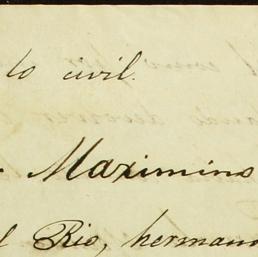 to civil.
Maximino
Rio, hermano